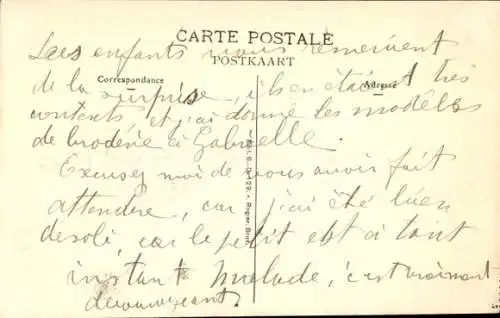 CARTE POSTALE
POSTKAART
Correspondance
Adresse
Les enfants vous remercient
de la surprise, ils en étaient très
contents et j'ai donné les modèles
de broderie à Gabrielle.
Excusez moi de vous avoir fait
attendre, car j'ai été bien
desolé, car le petit est à tout
instant malade, c'est vraiment
decourageant